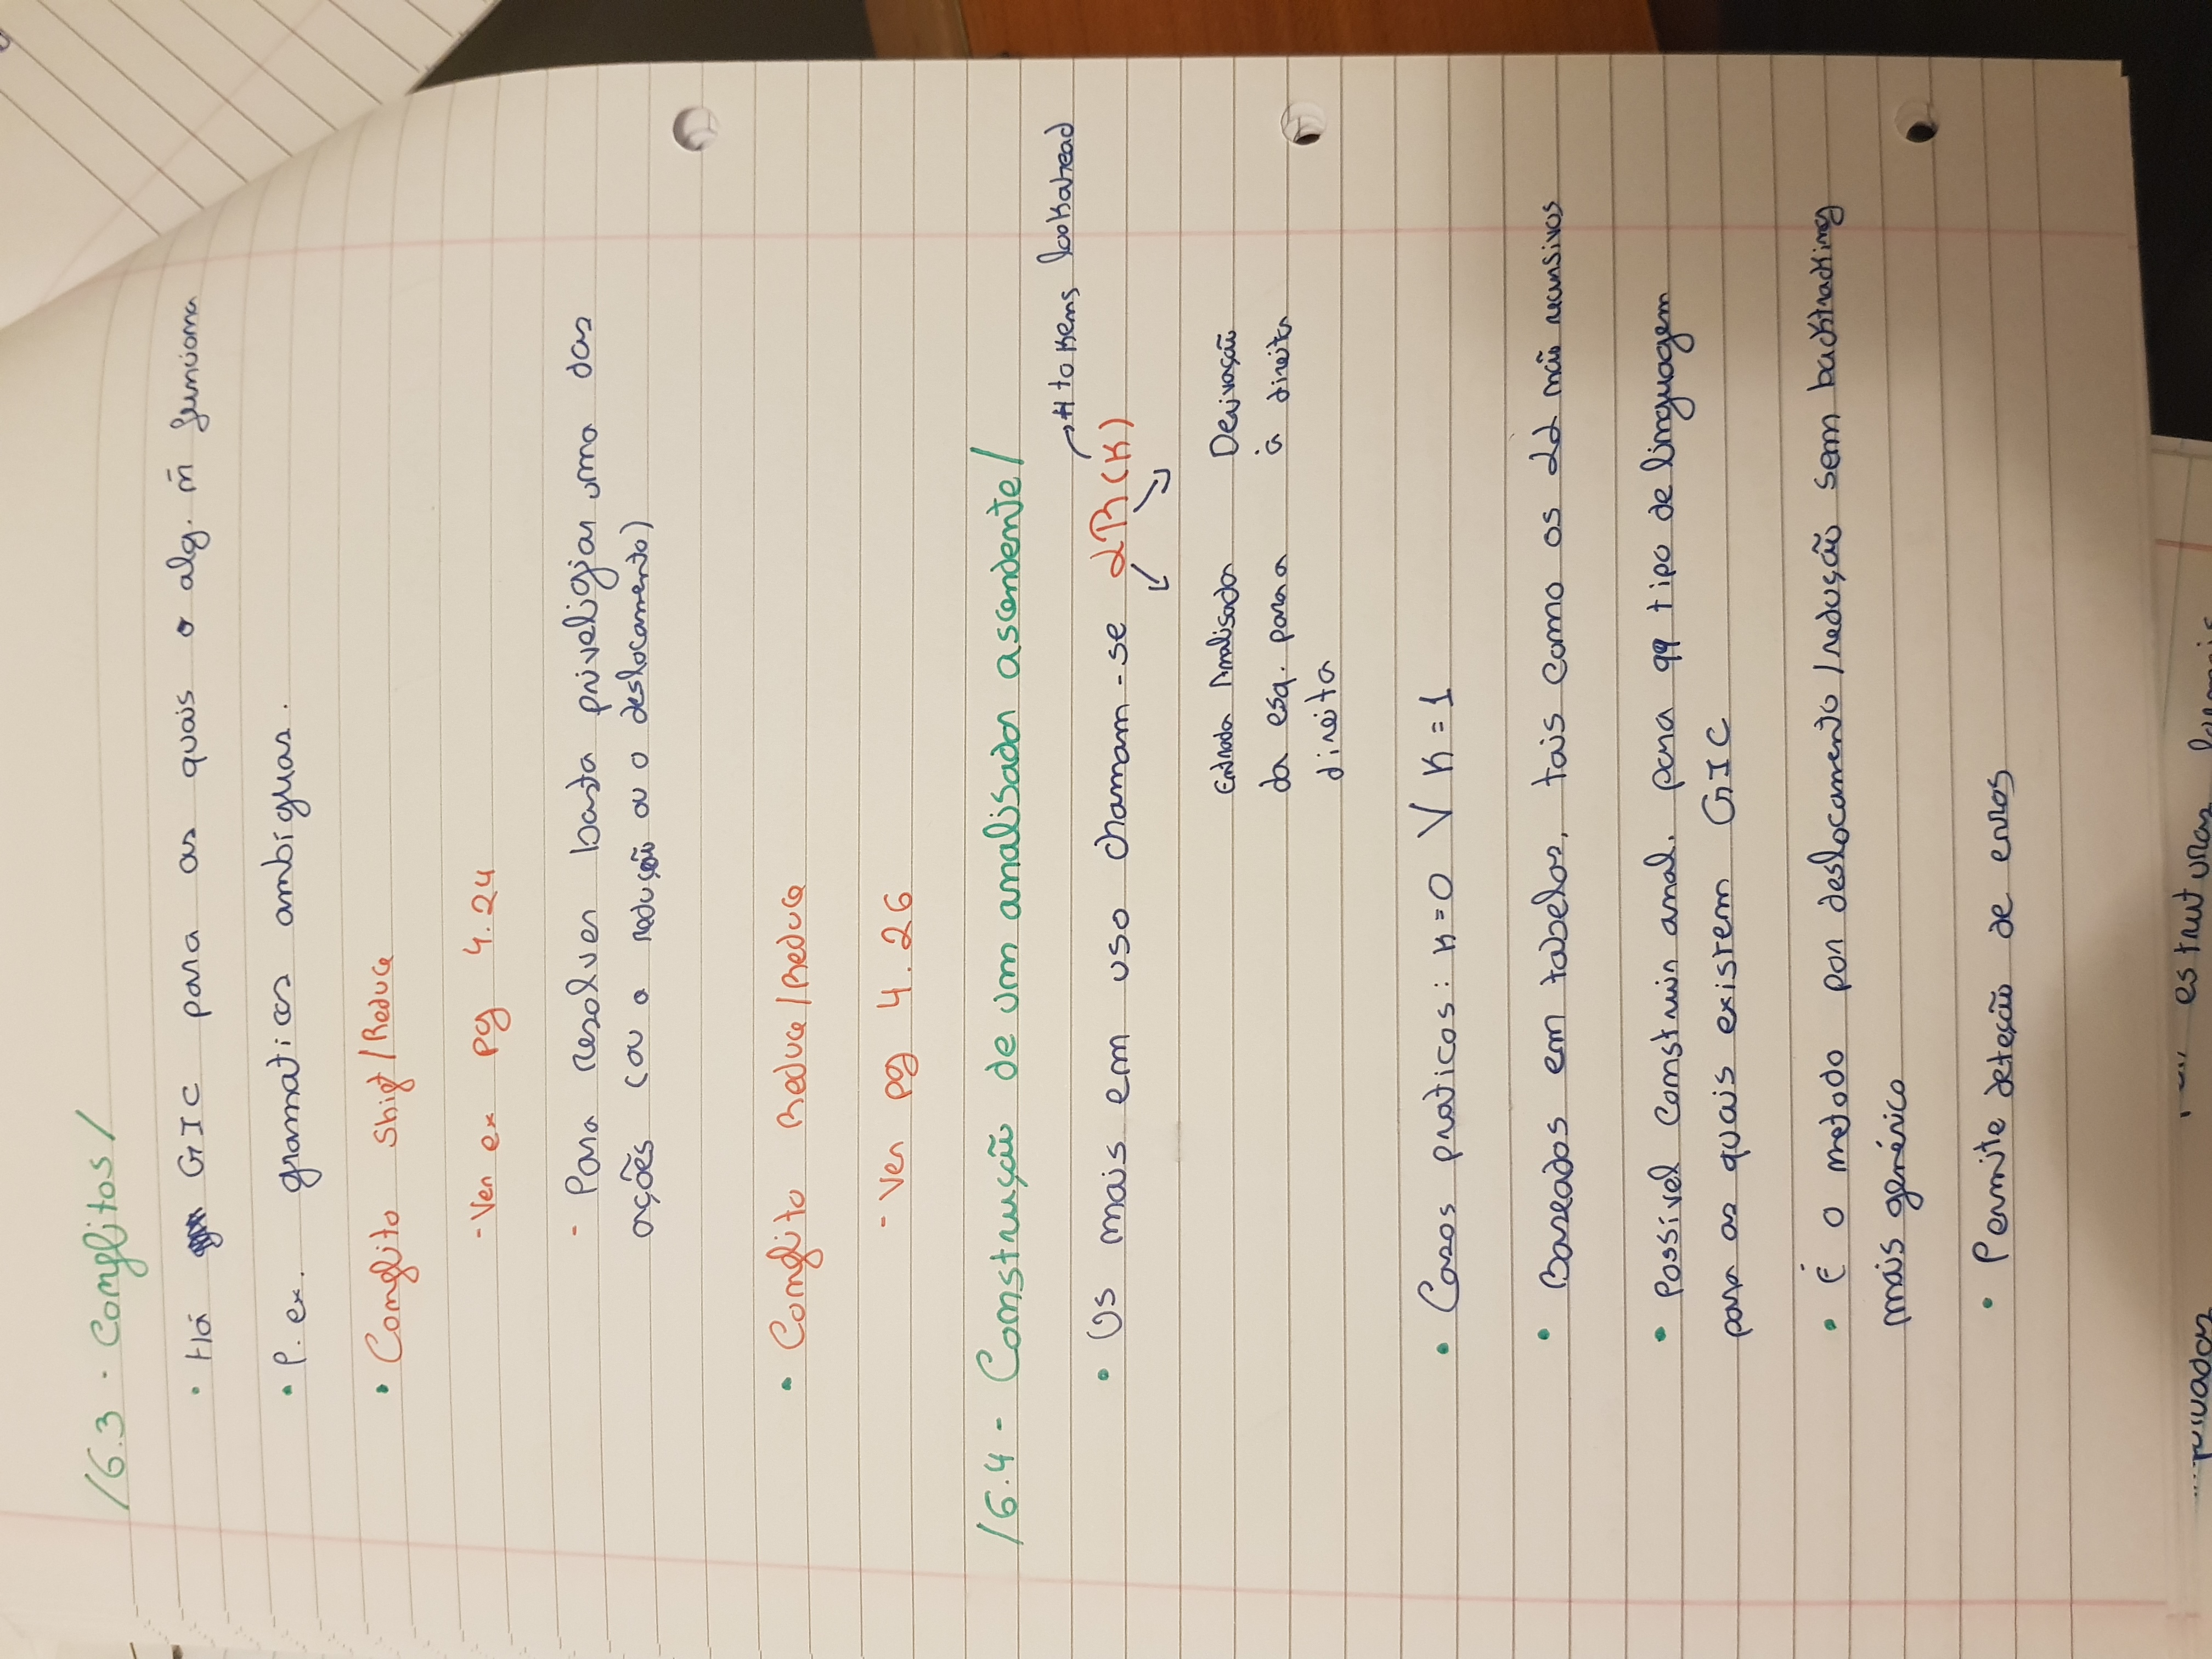 /6.3 - Conflitos/
• Há GIC para as quais o alg. ñ funciona
• P. ex. gramaticas ambíguas.
• Conflito Shift/Reduce
- Ver ex pg 4.24
- Para resolver basta priveligiar uma das
ações (ou a redução ou o deslocamento)
• Conflito Reduce/Reduce
- Ver pg 4.26
/6.4 - Construção de um analisador ascendente/
→ # tokens lookahead
• Os mais em uso chamam-se LR(K)
Entrada Analisada Derivação
da esq. para a à direita
direita
• Casos praticos: K=0 V K=1
• Baseados em tabelas, tais como os LL não recursivos
• Possível construir anal. para qq tipo de linguagem
para as quais existem GIC
• É o metodo por deslocamento/redução sem backtracking
mais genérico
• Permite deteção de erros
estruturas